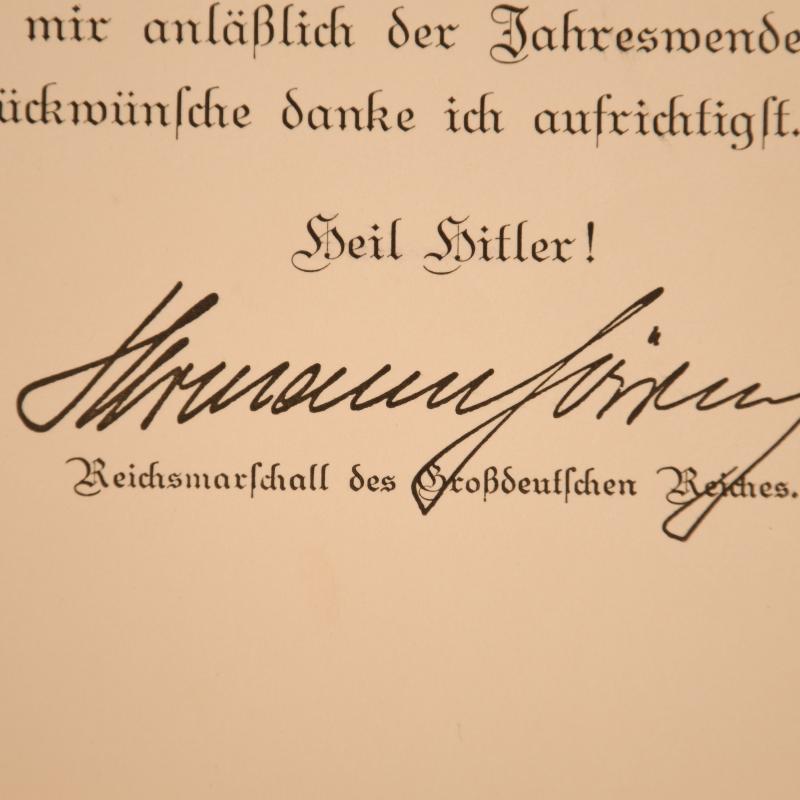 mir anläßlich der Jahreswende
ückwünsche danke ich aufrichtigst.
Heil Hitler!
Hermann Göring
Reichsmarschall des Großdeutschen Reiches.